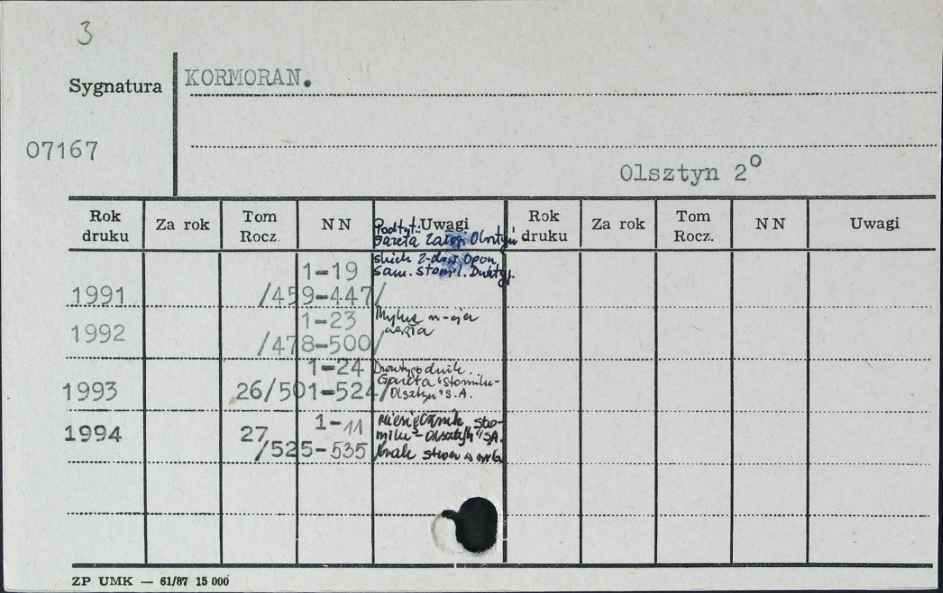 3
Sygnatura
KORMORAN.
07167
Olsztyn 2°
Rok druku Za rok Tom Rocz. NN Uwagi Rok druku Za rok Tom Rocz. NN Uwagi
Podtyt.:
Gazeta Załogi Olsztyń
skich Z-dów Opon
Sam. Stomil. Dwutyg.
1-19
1991 /459-447/
1-23 Mylna n-cja
1992 /478-500/
1-24 Dwutygodnik.
Gazeta "Stomilu-
1993 26/501-524/ Olsztyn" S.A.
1-11 Miesięcznik Sto-
1994 27 milu-Olsztyn" S.A.
/525-535 brak stron w
ZP UMK — 61/87 15 000